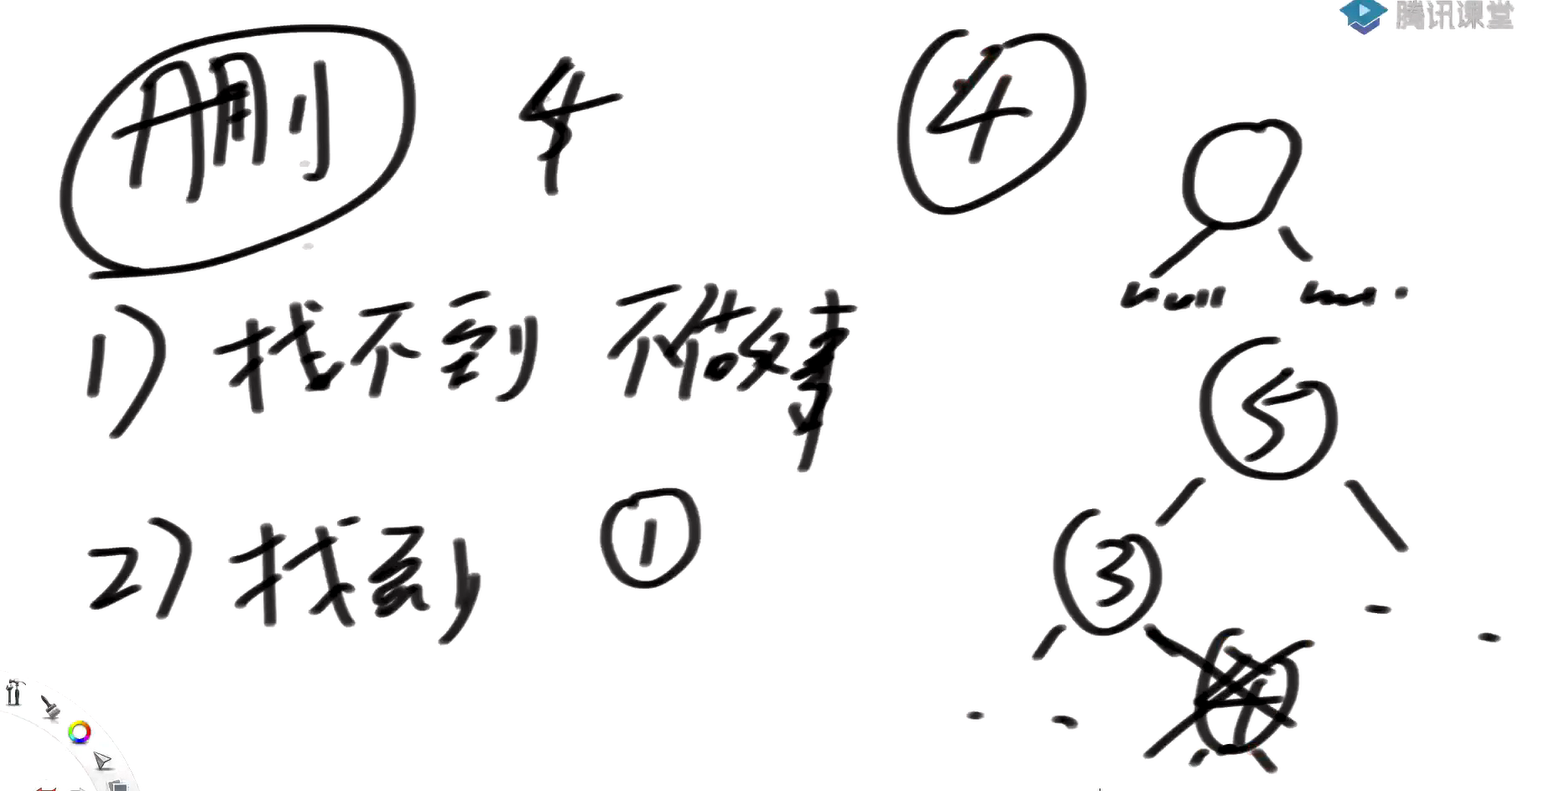 腾讯课堂
删 4 4
null null
1) 找不到 不做事
5
2) 找到 1
3
4